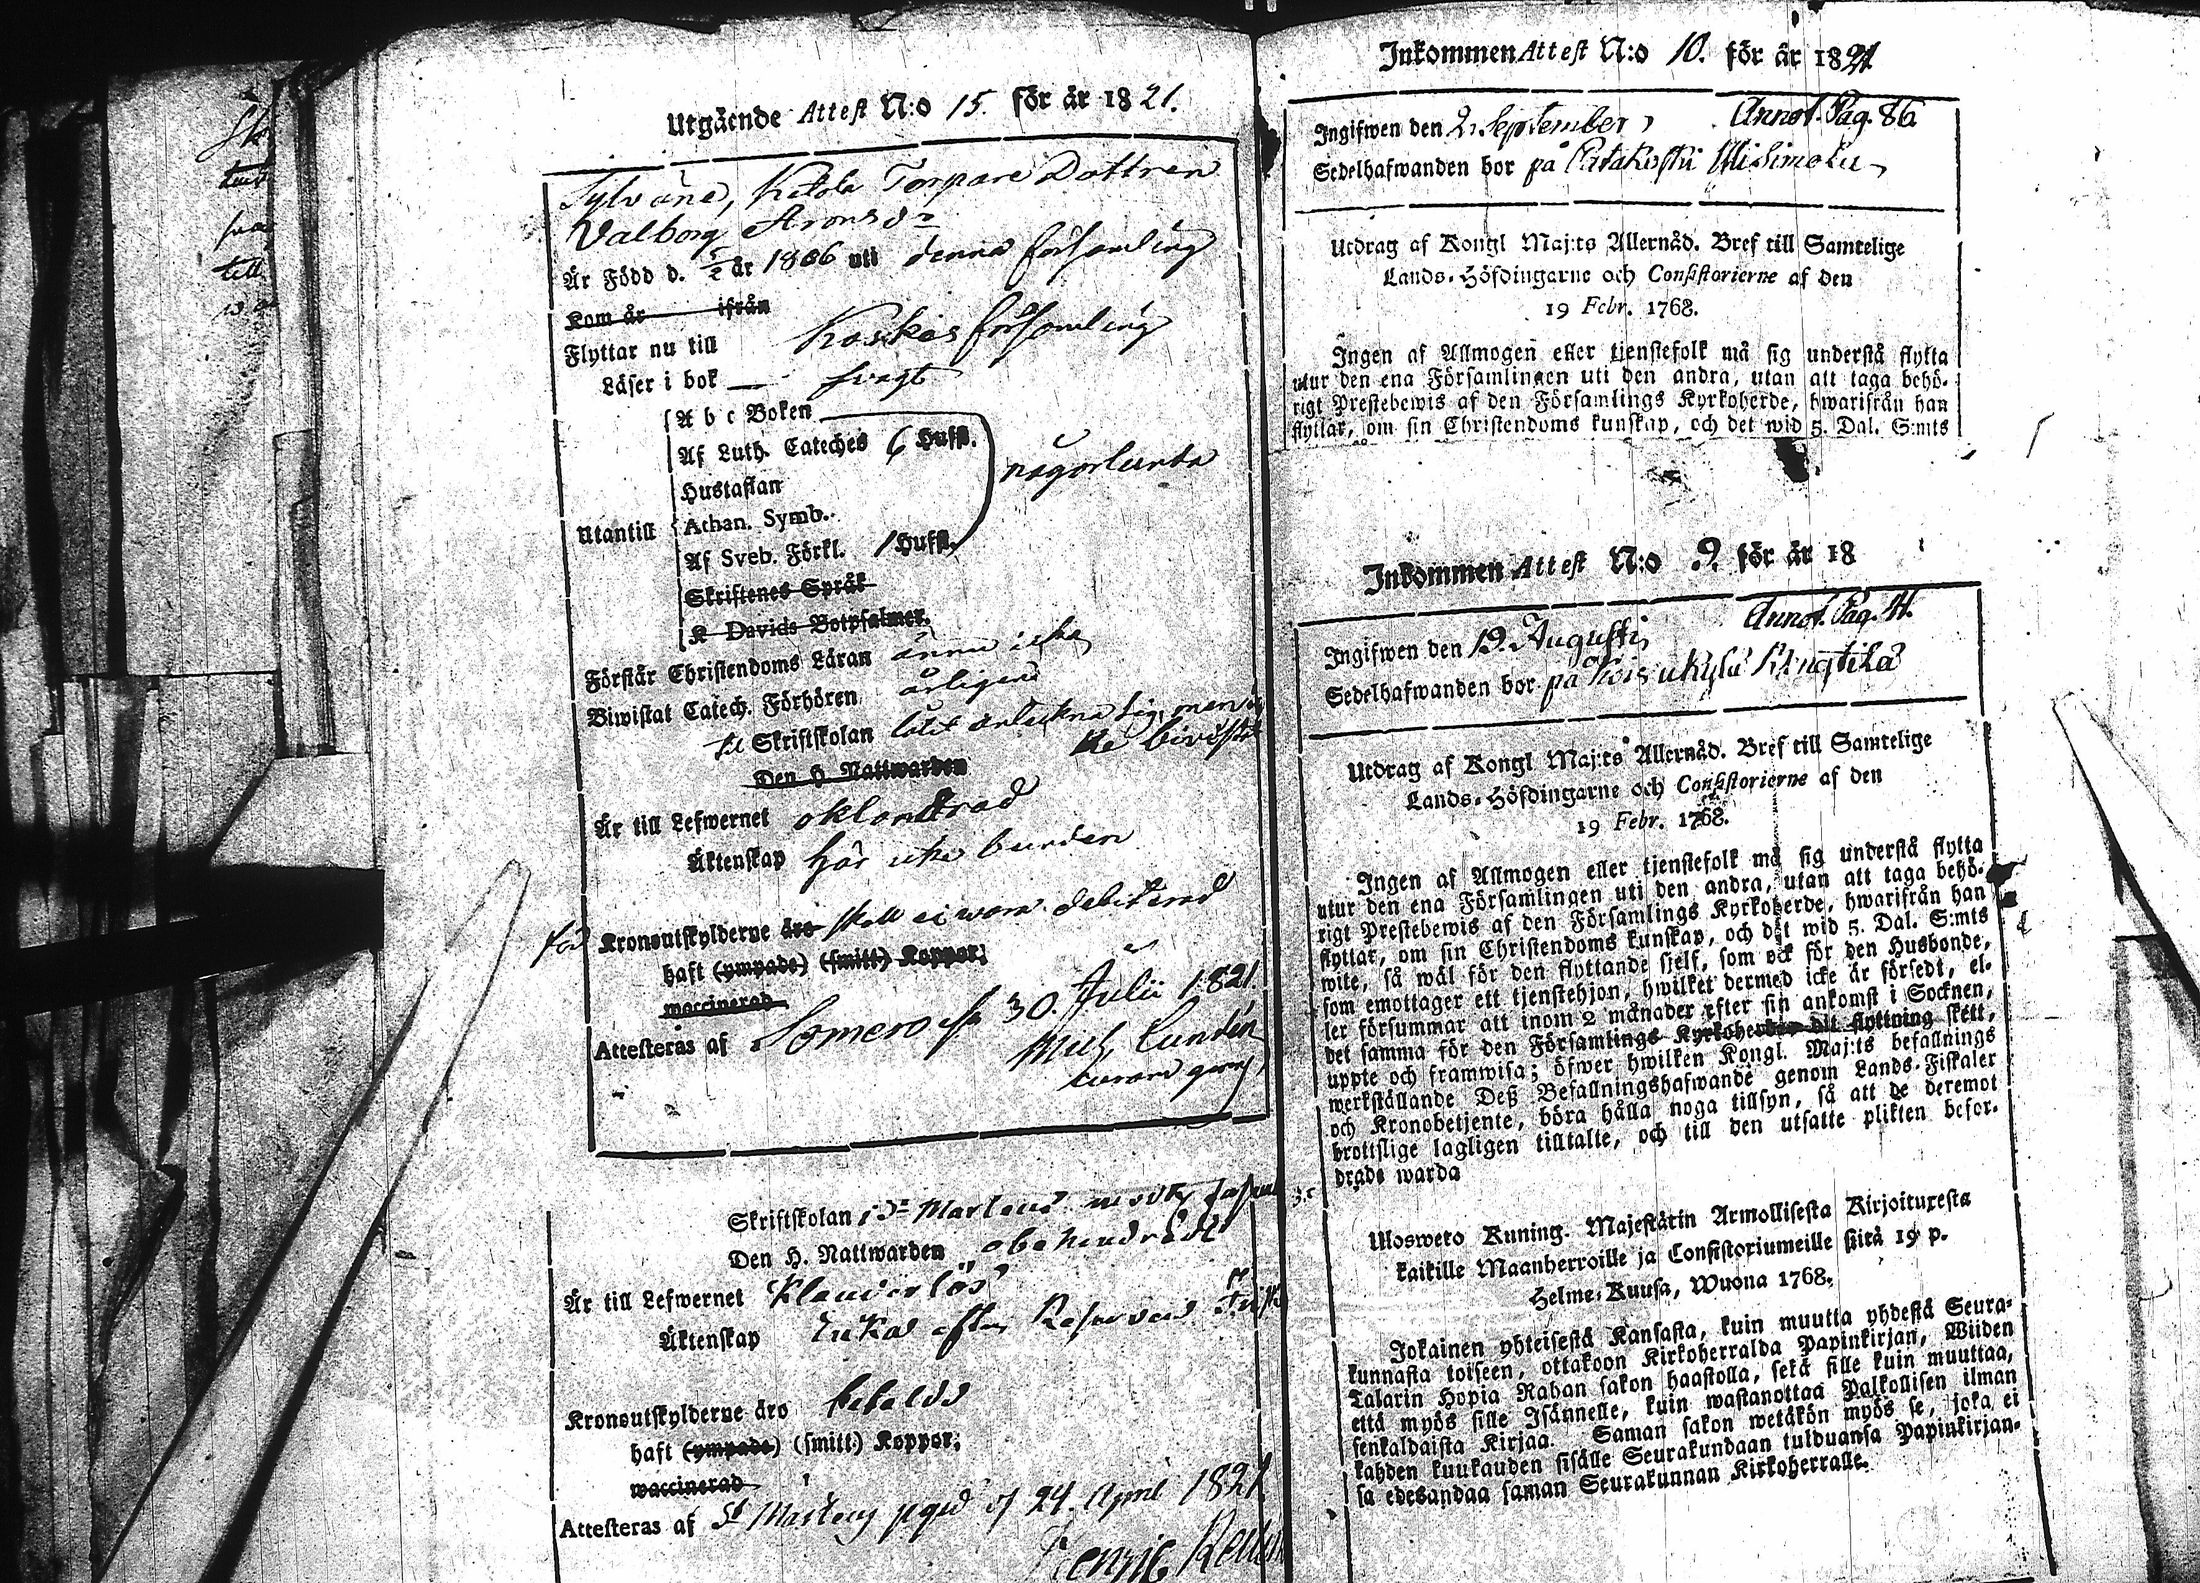 Utgående Attest N:o 15. för år 1821.
Sylväne, Ketola Torpare Dottren
Valborg Aronsdr
Är Född d. 5/2 år 1806 uti denna församling
Kom år ifrån
Flyttar nu till Koskis församling
Läser i bok svagt
A b c Boken
Af Luth. Cateches 6 Hufst.
Hustaflan
någorlunda
Utantill Athan. Symb.
Af Sveb. Förkl. 1 Hufst.
Skriftenes Språk
K Davids Botpsalmer.
Förstår Christendoms Läran ännu icke
Biwistat Catech. Förhören årligen
till Skriftskolan låtit anteckna sig, men ic
ke bivistat
Den H. Nattwarden
Är till Lefwernet oklandrad
Äktenskap här icke bunden
för Kronoutskylderne äro skall ei wara debiterad
haft (ympade) (smitt:) Koppor;
waccinerad
Attesteras af Somero 30. Julii 1821
Mich Lundén
Skriftskolan i St Martens
Den H. Nattwarden obehindradt
Är till Lefwernet Klanderlös
Äktenskap Enka efter
Kronoutskylderne äro betalde
haft (ympade) (smitt:) Koppor;
waccinerad
Attesteras af St Mårtens pgd 24. April 1821
Inkommen Attest N:o 10. för år 1821.
Ingifwen den 2. September, Annot. Pag. 86.
Sedelhafwanden bor på
Utdrag af Kongl Maj:ts Allernåd. Bref till Samtelige
Lands-Höfdingarne och Consistorierne af den
19 Febr. 1768.
Ingen af Allmogen eller tjenstefolk må sig understå flytta
utur den ena Församlingen uti den andra, utan att taga behö-
rigt Prestebewis af den Församlings Kyrkoherde, hwarifrån han
flyttar, om sin Christendoms kunskap, och det wid 5. Dal. S:mts
Inkommen Attest N:o 9. för år 18
Annot. Pag. 11.
Ingifwen den 19. Augusti,
Sedelhafwanden bor på
Utdrag af Kongl Maj:ts Allernåd. Bref till Samtelige
Lands-Höfdingarne och Consistorierne af den
19 Febr. 1768.
Ingen af Allmogen eller tjenstefolk må sig understå flytta
utur den ena Församlingen uti den andra, utan att taga behö-
rigt Prestebewis af den Församlings Kyrkoherde, hwarifrån han
flyttar, om sin Christendoms kunskap, och det wid 5. Dal. S:mts
wite, så wäl för den flyttande sjelf, som ock för den Husbonde,
som emottager ett tjenstehjon, hwilket dermed icke är försedt, el-
ler försummar att inom 2 månader efter sin ankomst i Socknen,
det samma för den Församlings Kyrkoherde dit flyttning skett,
uppte och framwisa; öfwer hwilken Kongl. Maj:ts befallnings
werkställande Deß Befallningshafwande genom Lands-Fiskaler
och Kronobetjente, böra hålla noga tillsyn, så att de deremot
brottslige lagligen tilltalte, och till den utsatte plikten befor-
drade warda
Ulosweto Kuning. Majestätin Armollisesta Kirjoituxesta
kaikille Maanherroille ja Consistoriumeille siitä 19 p.
Helme-Kuusa, Wuona 1768.
Jokainen yhteisestä Kansasta, kuin muutta yhdestä Seura-
kunnasta toiseen, ottakoon Kirkoherralda Papinkirjan, Wiiden
Talarin Hopia Rahan sakon haastolla, sekä sille kuin muuttaa,
että myös sille Isännelle, kuin wastanottaa Palkollisen ilman
senkaldaista Kirjaa. Saman sakon wetäkön myös se, joka ei
kahden kuukauden sisälle Seurakundaan tulduansa Papinkirjan-
sa edesandaa saman Seurakunnan Kirkoherralle.